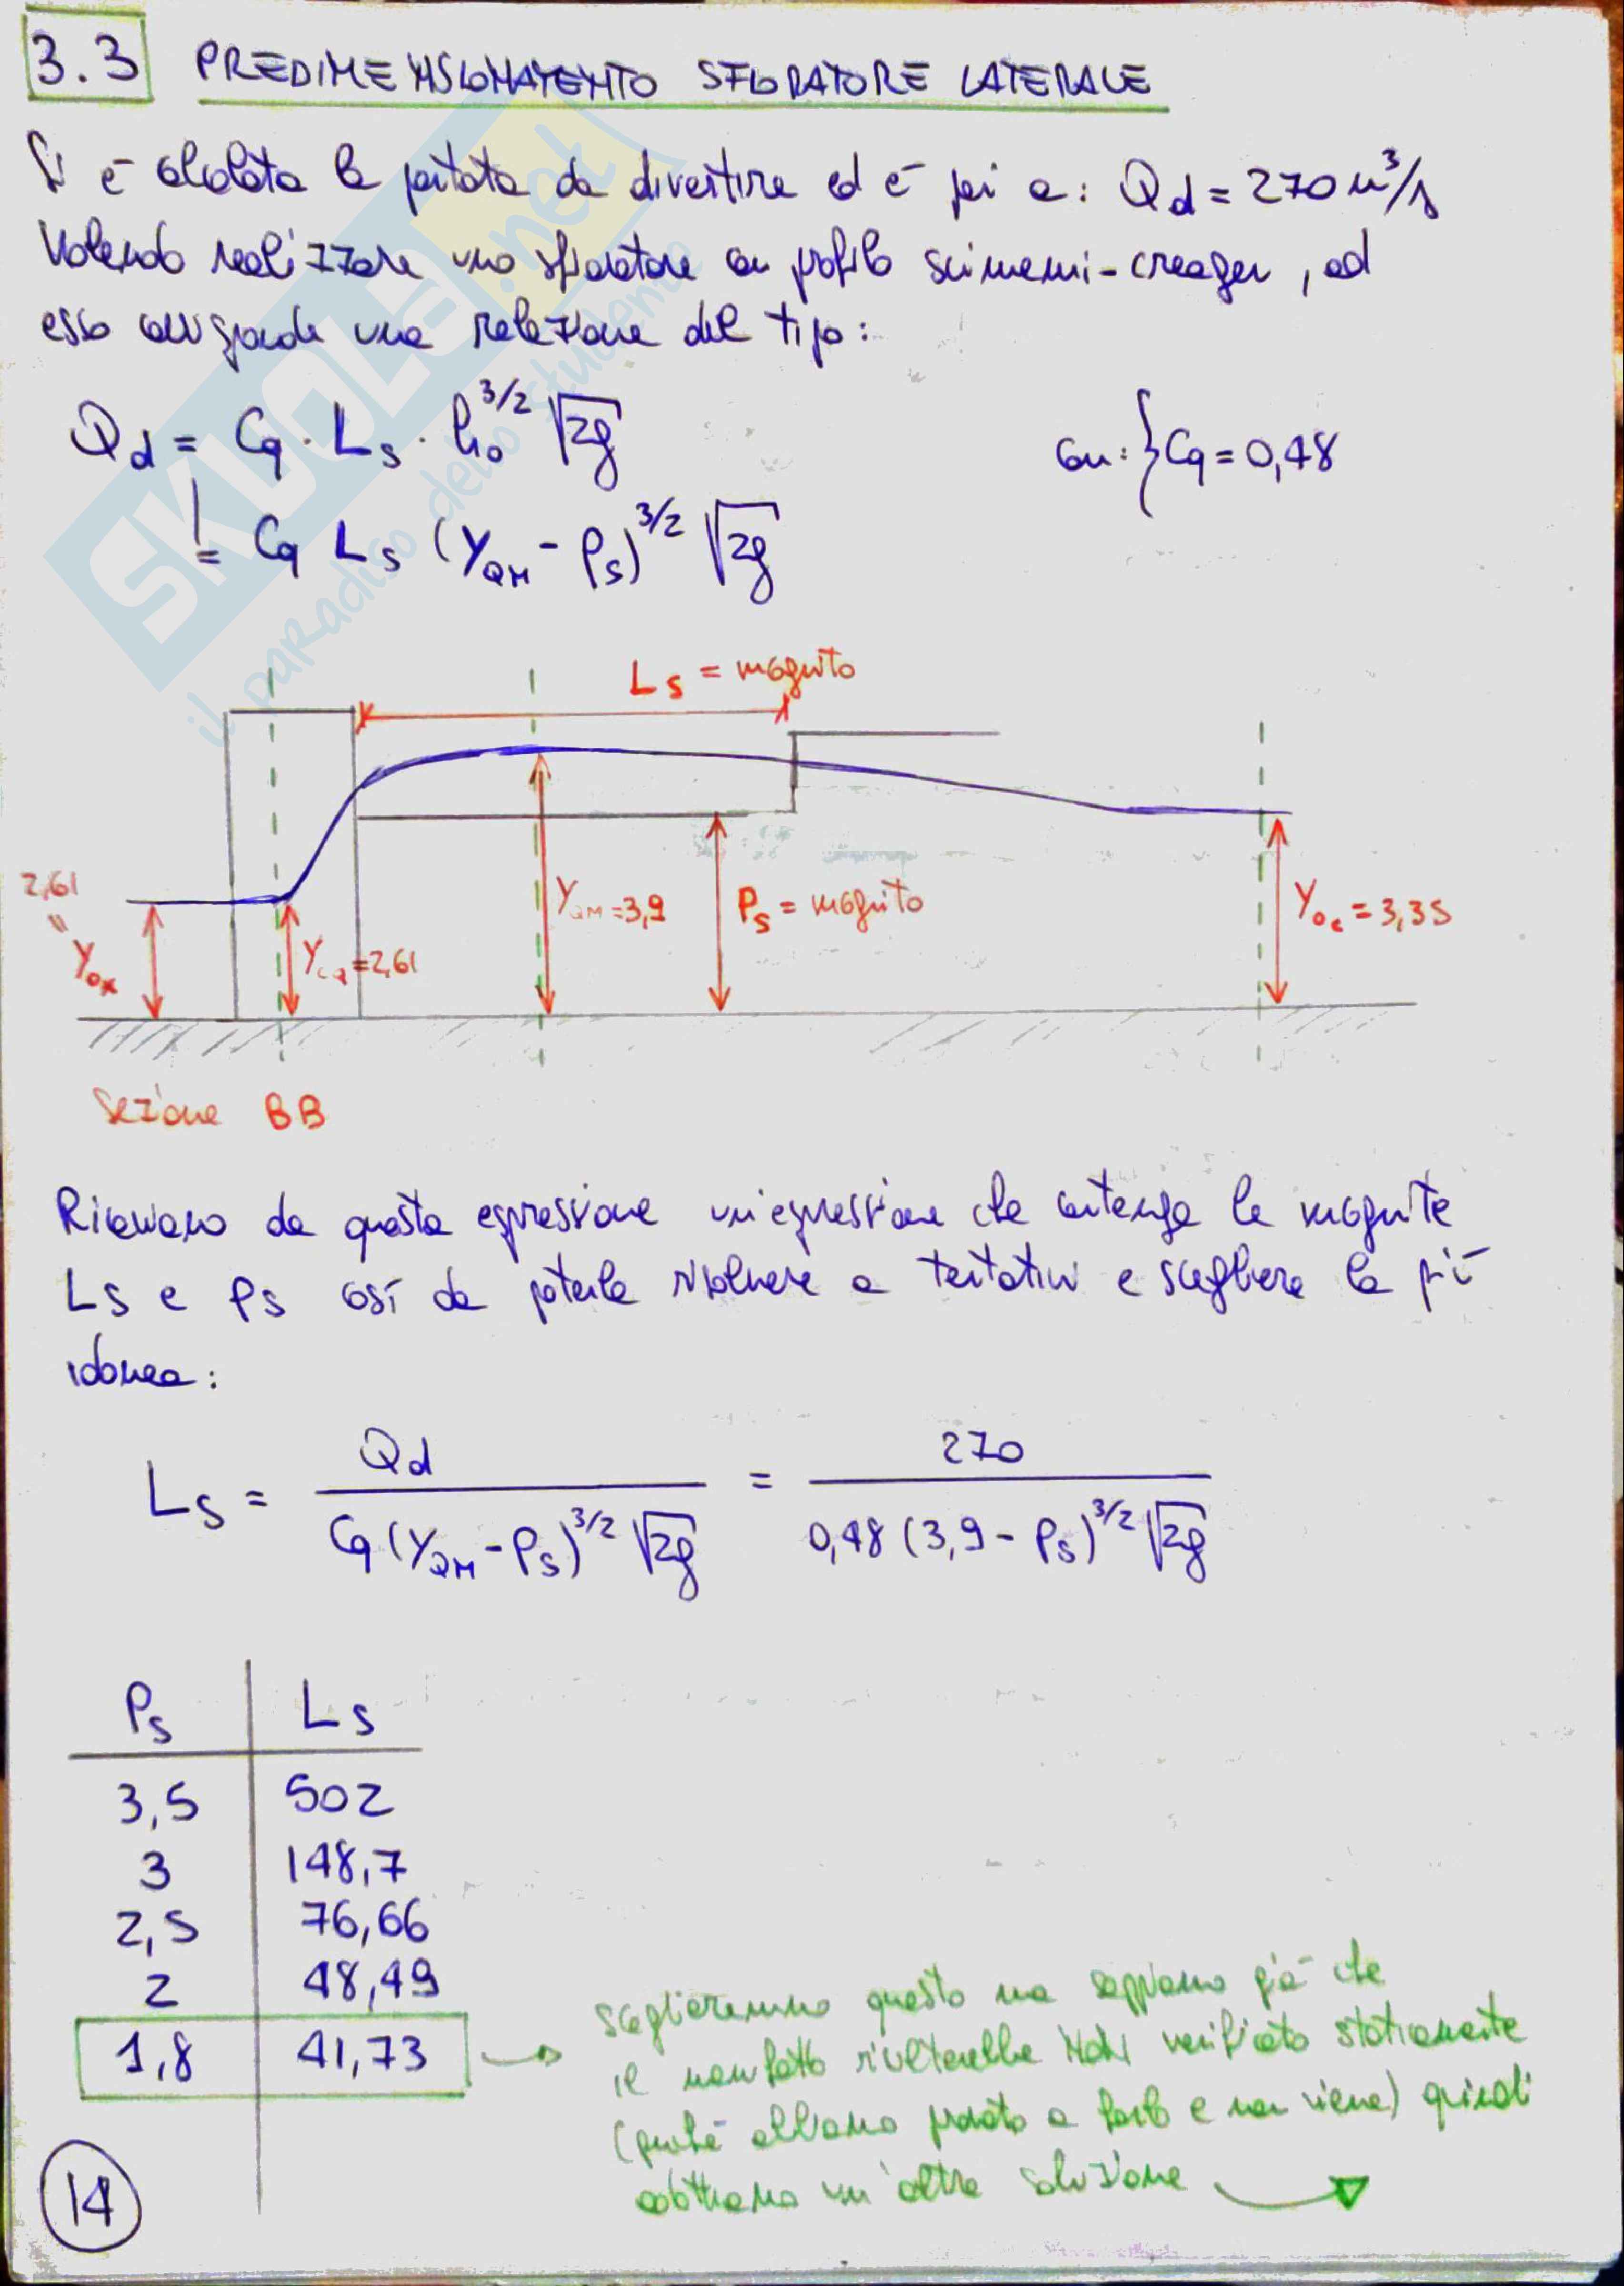 3.3 PREDIMENSIONAMENTO SFIORATORE LATERALE
Si è calcolata la portata da divertire ed è pari a: Qd = 270 m³/s
Volendo realizzare uno sfioratore con profilo scimemi-creager, ad
esso corrisponde una relazione del tipo:
Qd = Cq · Ls · h₀^3/2 √2g
con: { Cq = 0,48
= Cq Ls (YQM - Ps)^3/2 √2g
Ls = incognito
2,61
"
Yox
Ycq = 2,61
YQM = 3,9
Ps = incognito
Yoc = 3,35
Sezione BB
Ricaviamo da questa espressione un'espressione che contenga le incognite
Ls e Ps così da poterla risolvere a tentativi e scegliere la più
idonea:
Ls = Qd / Cq (YQM - Ps)^3/2 √2g = 270 / 0,48 (3,9 - Ps)^3/2 √2g
Ps | Ls
3,5 | 502
3 | 148,7
2,5 | 76,66
2 | 48,49
1,8 | 41,73
sceglieremmo questo ma sappiamo già che
il manufatto risulterebbe NON verificato staticamente
(perché abbiamo provato a farlo e non viene) quindi
adottiamo un'altra soluzione
14
SKUOLA.net
il paradiso dello studente